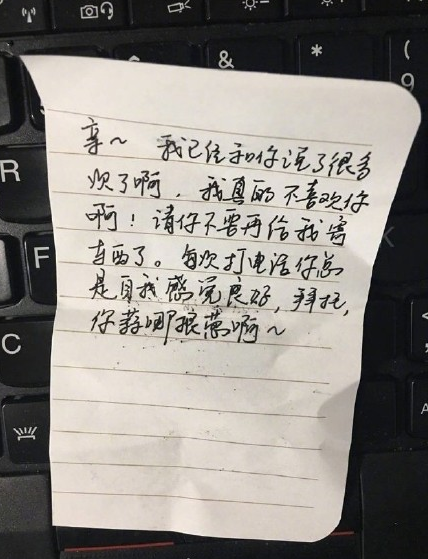 亲～ 我已经和你说了很多
次了啊，我真的不喜欢你
啊！请你不要再给我寄
东西了。每次打电话你总
是自我感觉良好，拜托，
你蒜哪根葱啊～
&
*
(
9
R
F
C